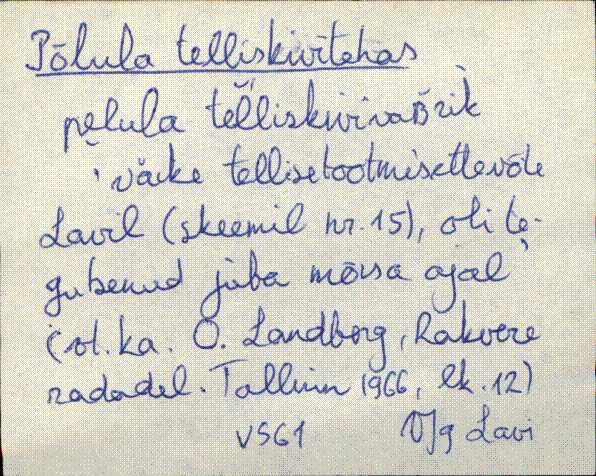 Põlula telliskivitehas
pe̮lula tel̆liskivivaBrik
väike tellisetootmisettevõte
Lavil (skeemil nr. 15), oli te-
gutsenud juba mõisa ajal
(vt. ka. O. Landberg, Rakvere
radadel. Tallinn 1966, lk. 12)
VJg Lavi